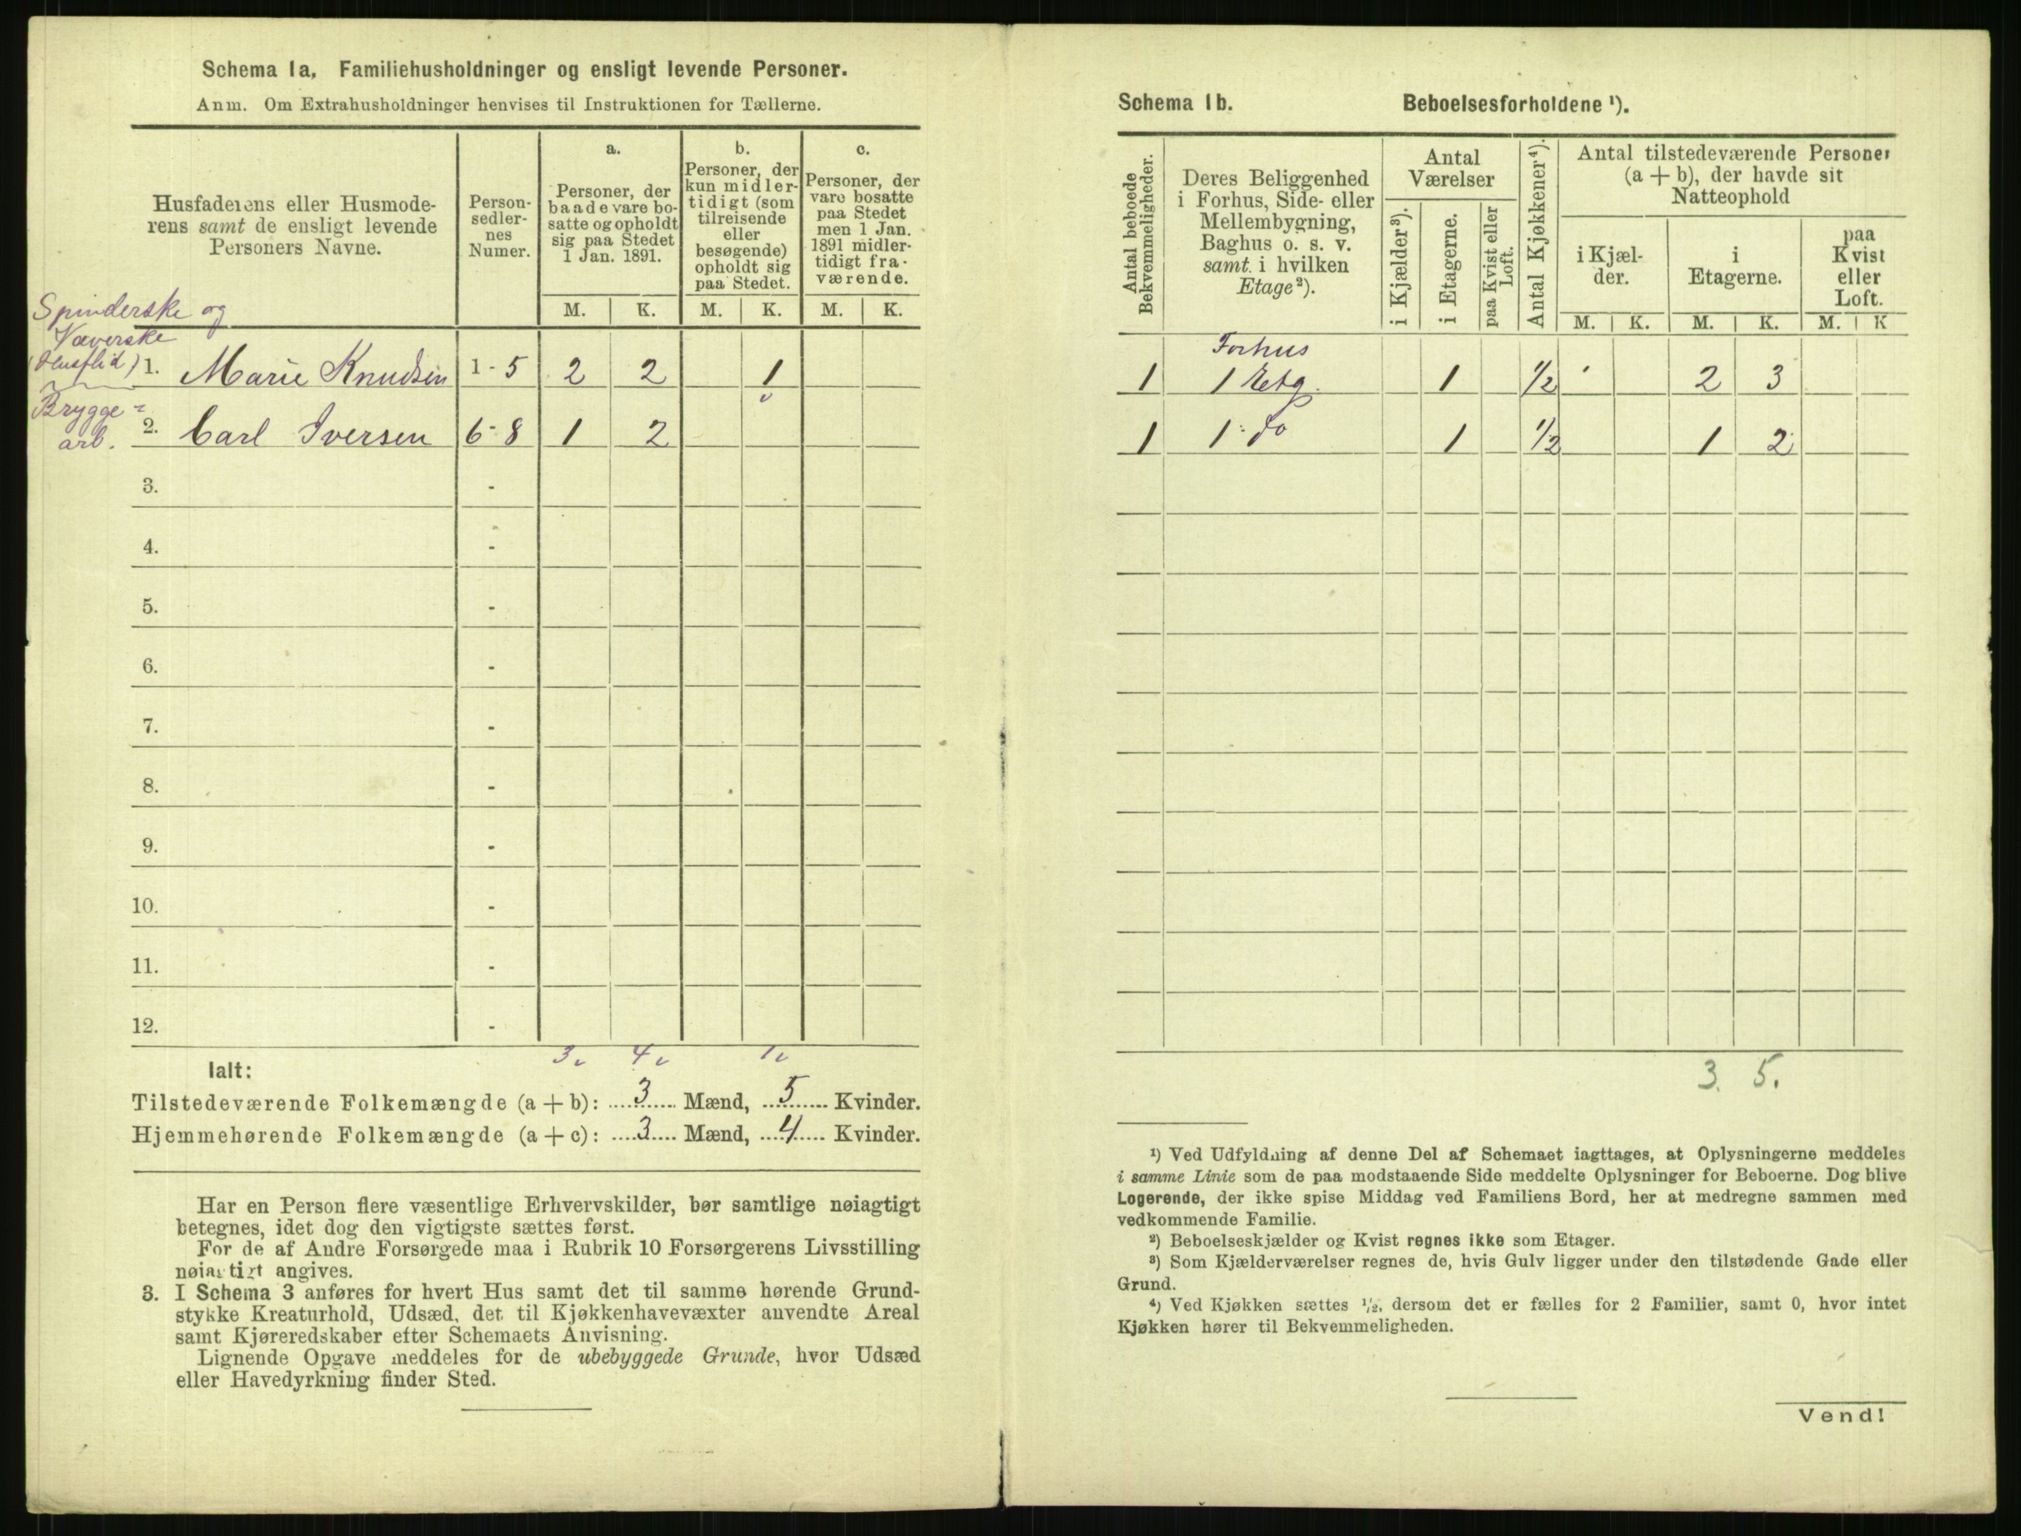 Schema 1a, Familiehusholdninger og ensligt levende Personer.
Anm. Om Extrahusholdninger henvises til Instruktionen for Tællerne.
Husfaderens eller Husmoderens samt de ensligt levende Personers Navne.
Person-sedler-nes Numer.
a. Personer, der baade vare bosatte og opholdt sig paa Stedet 1 Jan. 1891.
b. Personer, der kun midlertidigt (som tilreisende eller besøgende) opholdt sig paa Stedet.
c. Personer, der vare bosatte paa Stedet men 1 Jan. 1891 midlertidigt fraværende.
M. K. M. K. M. K.
Spinderske og
Væverske
(Husflid) 1. Marie Knudsen 1 - 5 2 2 1
Brygge=
arb. 2. Carl Iversen 6 - 8 1 2
3. -
4. -
5. -
6. -
7. -
8. -
9. -
10. -
11. -
12. -
3 4 1
Ialt:
Tilstedeværende Folkemængde (a + b): 3 Mænd, 5 Kvinder.
Hjemmehørende Folkemængde (a + c): 3 Mænd, 4 Kvinder.
Har en Person flere væsentlige Erhvervskilder, bør samtlige nøiagtigt
betegnes, idet dog den vigtigste sættes først.
For de af Andre Forsørgede maa i Rubrik 10 Forsørgerens Livsstilling
nøiagtigt angives.
3. I Schema 3 anføres for hvert Hus samt det til samme hørende Grund-
stykke Kreaturhold, Udsæd, det til Kjøkkenhavevæxter anvendte Areal
samt Kjøreredskaber efter Schemaets Anvisning.
Lignende Opgave meddeles for de ubebyggede Grunde, hvor Udsæd
eller Havedyrkning finder Sted.
Schema 1b. Beboelsesforholdene ¹).
Antal beboede Bekvemmeligheder.
Deres Beliggenhed i Forhus, Side- eller Mellembygning, Baghus o. s. v. samt i hvilken Etage ²).
Antal Værelser
i Kjælder ³).
i Etagerne.
paa Kvist eller Loft.
Antal Kjøkkener ⁴).
Antal tilstedeværende Personer (a + b), der havde sit Natteophold
i Kjælder.
i Etagerne.
paa Kvist eller Loft.
M. K. M. K. M. K
Forhus
1 1 Etg. 1 ½ 2 3
1 1 Do 1 ½ 1 2
3. 5.
¹) Ved Udfyldning af denne Del af Schemaet iagttages, at Oplysningerne meddeles
i samme Linie som de paa modstaaende Side meddelte Oplysninger for Beboerne. Dog blive
Logerende, der ikke spise Middag ved Familiens Bord, her at medregne sammen med
vedkommende Familie.
²) Beboelseskjælder og Kvist regnes ikke som Etager.
³) Som Kjælderværelser regnes de, hvis Gulv ligger under den tilstødende Gade eller
Grund.
⁴) Ved Kjøkken sættes ½, dersom det er fælles for 2 Familier, samt 0, hvor intet
Kjøkken hører til Bekvemmeligheden.
Vend!